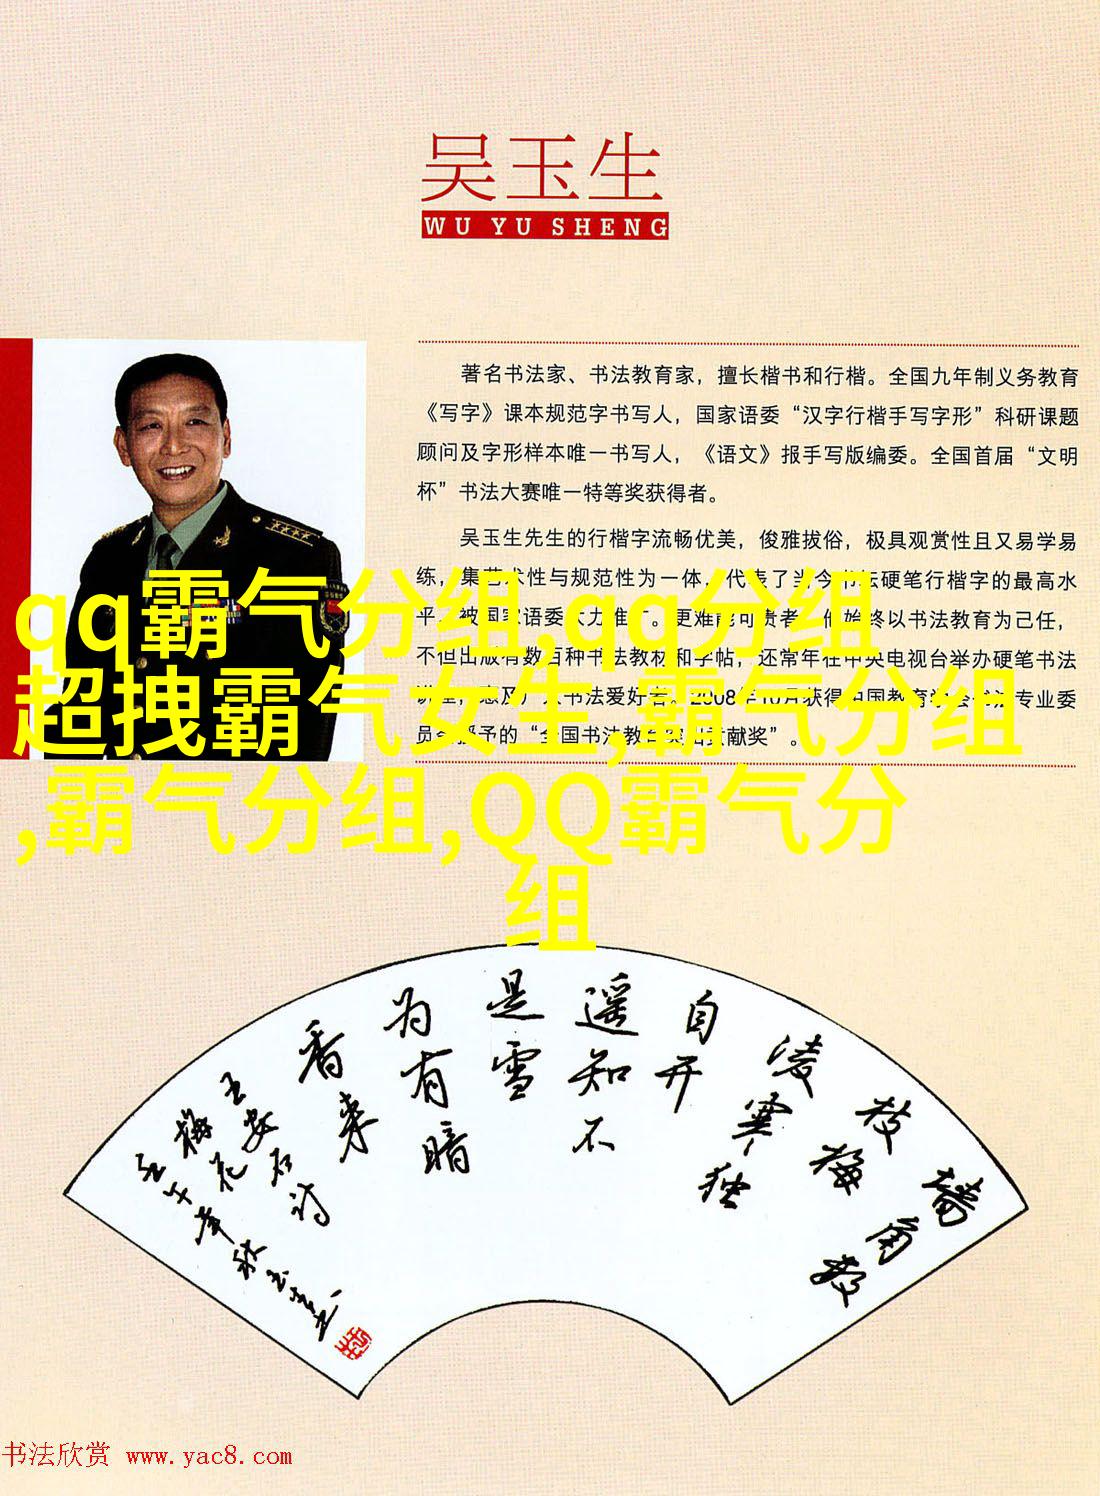 吴玉生
WU YU SHENG
著名书法家、书法教育家，擅长楷书和行楷。全国九年制义务教育
《写字》课本规范字书写人，国家语委“汉字行楷手写字形”科研课题
顾问及字形样本唯一书写人，《语文》报手写版编委。全国首届“文明
杯”书法大赛唯一特等奖获得者。
吴玉生先生的行楷字流畅优美，俊雅拔俗，极具观赏性且又易学易
练，集艺术性与规范性为一体，代表了当今书坛硬笔行楷字的最高水
平，被国家语委大力推广。更难能可贵者，他始终以书法教育为己任，
不但出版有数百种书法教材和字帖，还常年在中央电视台举办硬笔书法
讲座，惠及广大书法爱好者。2008年10月获得中国教育学会书法专业委
员会授予的“全国书法教育突出贡献奖”。
qq霸气分组,qq分组
超拽霸气女生,霸气分组
,霸气分组,QQ霸气分
组
墙角数
枝梅
凌寒独
自开
遥知不
是雪
为有暗
香来
王安石诗
梅花
壬午年秋玉生书
书法欣赏 www.yac8.com